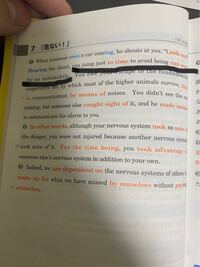 7 「危ない！」
❶ When someone sees a car coming, he shouts at you, "Look out!"
Hearing the shout, you jump just in time to avoid being run
by an automobile. You owe your escape to the fundamental
cooperative act by which most of the higher animals survive,
is, communication by means of noises. You didn't see the car
coming, but someone else caught sight of it, and he made noises
to communicate his alarm to you.
❷ In other words, although your nervous system took no note of
the danger, you were not injured because another nervous system
took note of it. For the time being, you took advantage of
someone else's nervous system in addition to your own.
❸ Indeed, we are dependent on the nervous systems of others to
make up for what we have missed by ourselves without paying
attention.